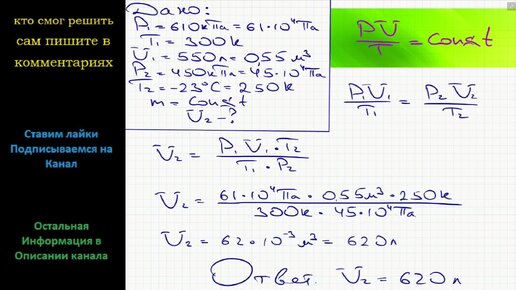 кто смог решить
сам пишите в
комментариях
Ставим лайки
Подписываемся на
Канал
Остальная
Информация в
Описании канала
Дано:
P₁ = 610кПа = 61·10⁴Па
T₁ = 300К
V₁ = 550л = 0,55 м³
P₂ = 450кПа = 45·10⁴Па
T₂ = -23°С = 250К
m = const
V₂ - ?
PV/T = const
P₁V₁/T₁ = P₂V₂/T₂
V₂ = P₁V₁·T₂/T₁·P₂
V₂ = 61·10⁴Па · 0,55м³ · 250К/300К · 45·10⁴Па
V₂ = 62·10⁻³м³ = 620л
Ответ. V₂ = 620л